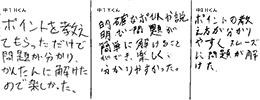 中1 Kくん
ポイントを教え
てもらっただけで
問題が分かり、
かんたんに解けた
ので楽しかった。
中1 Hくん
的確なおじんや説
明で問題が
簡単に解けること
ができ、楽しく、
分かりやすかった。
中2 Kくん
ポイントの教
え方が分かり
やすく、スムーズ
に問題が解け
た。